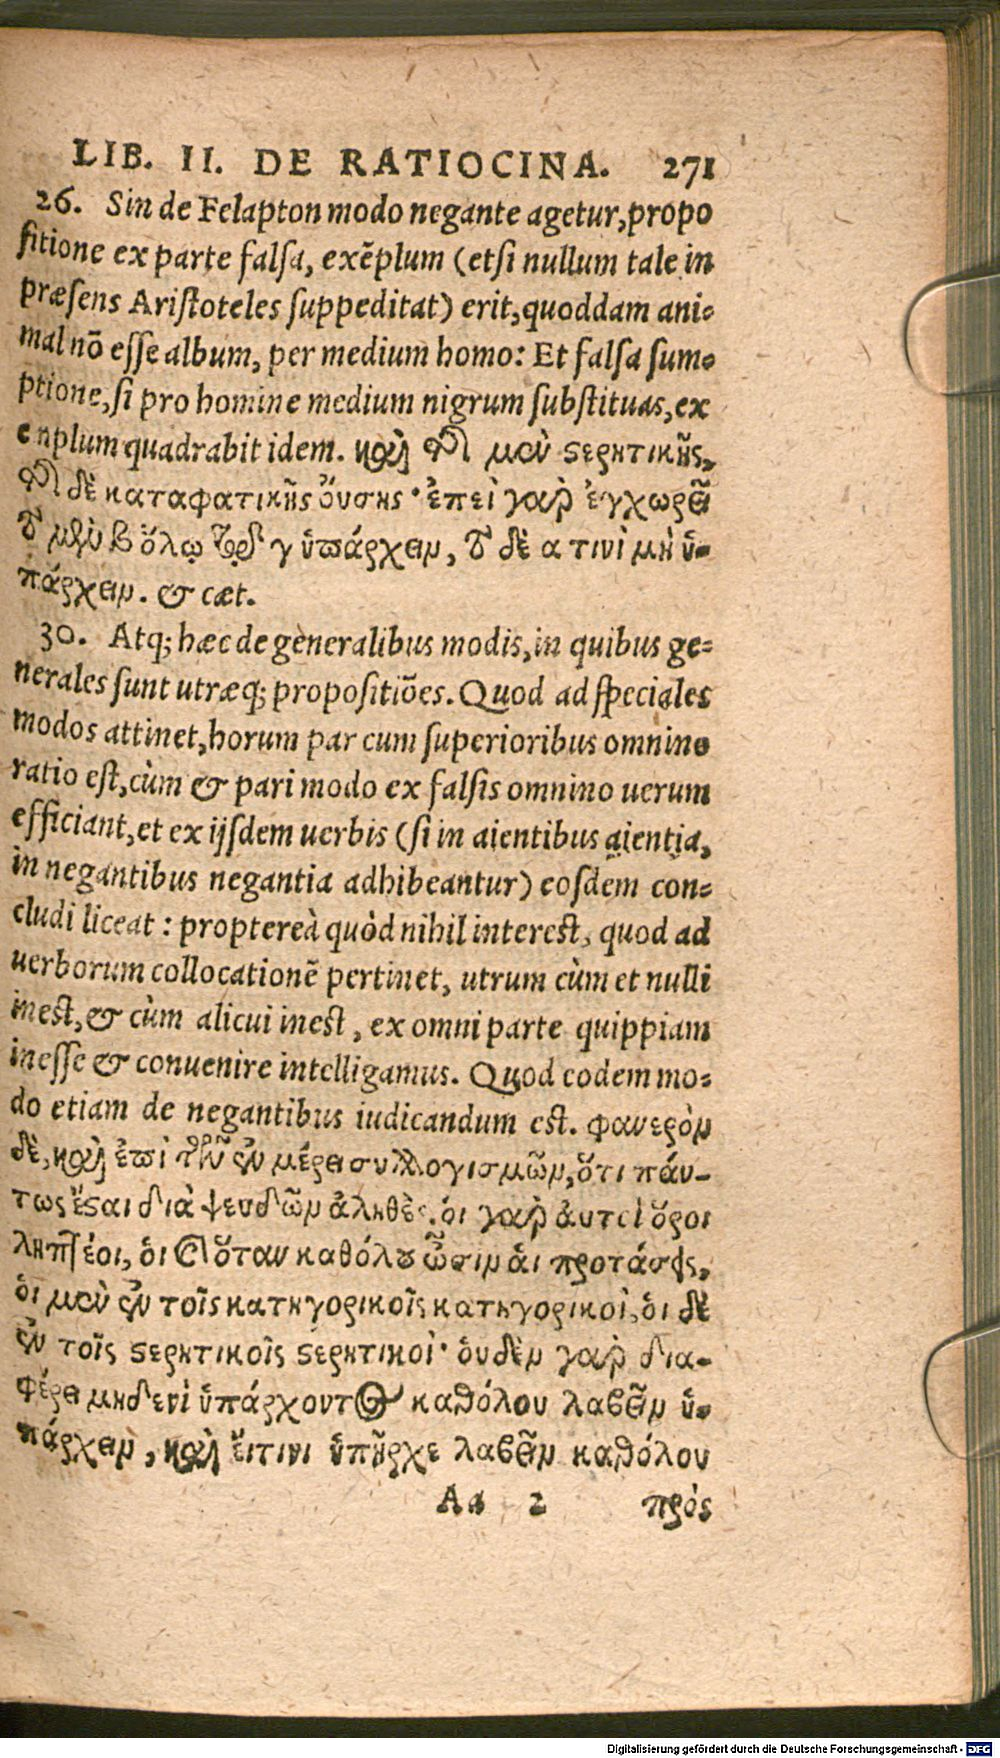 LIB. II. DE RATIOCINA. 271
26. Sin de Felapton modo negante agetur, propo
sitione ex parte falsa, exẽplum (etsi nullum tale in
præsens Aristoteles suppeditat) erit, quoddam ani-
mal nõ esse album, per medium homo: Et falsa sum-
ptione, si pro homine medium nigrum substituas, ex
emplum quadrabit idem. καὶ τῆ μὲν στερητικῆς,
τῆ δὲ καταφατικῆς οὔσης· ἐπεὶ γὰρ ἐγχωρεῖ
τὸ μὲν β ὅλῳ τῷ γ ὑπάρχειν, τὸ δὲ α τινὶ μὴ ὑ-
πάρχειν. & cæt.
30. Atq; hæc de generalibus modis, in quibus ge-
nerales sunt utræq; propositiões. Quod ad speciales
modos attinet, horum par cum superioribus omnino
ratio est, cùm & pari modo ex falsis omnino uerum
efficiant, et ex ijsdem uerbis (si in aientibus aientia,
in negantibus negantia adhibeantur) eosdem con-
cludi liceat: propterea quòd nihil interest, quod ad
uerborum collocationẽ pertinet, utrum cùm et nulli
inest, & cùm alicui inest, ex omni parte quippiam
inesse & conuenire intelligamus. Quod eodem mo-
do etiam de negantibus iudicandum est. φανερὸν
δὲ, καὶ ἐπὶ τῶν ἐν μέρει συλλογισμῶν, ὅτι πάν-
τως ἔσται διὰ ψευδῶν ἀληθὲς. ὁι γὰρ ἀυτοὶ ὅροι
ληπτέοι, ὁι καὶ ὅταν καθόλου ὦσιν ἁι προτάσεις,
ὁι μὲν ἐν τοῖς κατηγορικοῖς κατηγορικοὶ, ὁι δὲ
ἐν τοῖς στερητικοῖς στερητικοὶ· ὀυδὲν γὰρ δια-
φέρει μηδενὶ ὑπάρχοντος καθόλου λαβεῖν ὑ-
πάρχειν, καὶ ἔιτινι ὑπῆρχε λαβεῖν καθόλου
Aa 2 πρός
Digitalisierung gefördert durch die Deutsche Forschungsgemeinschaft - DFG